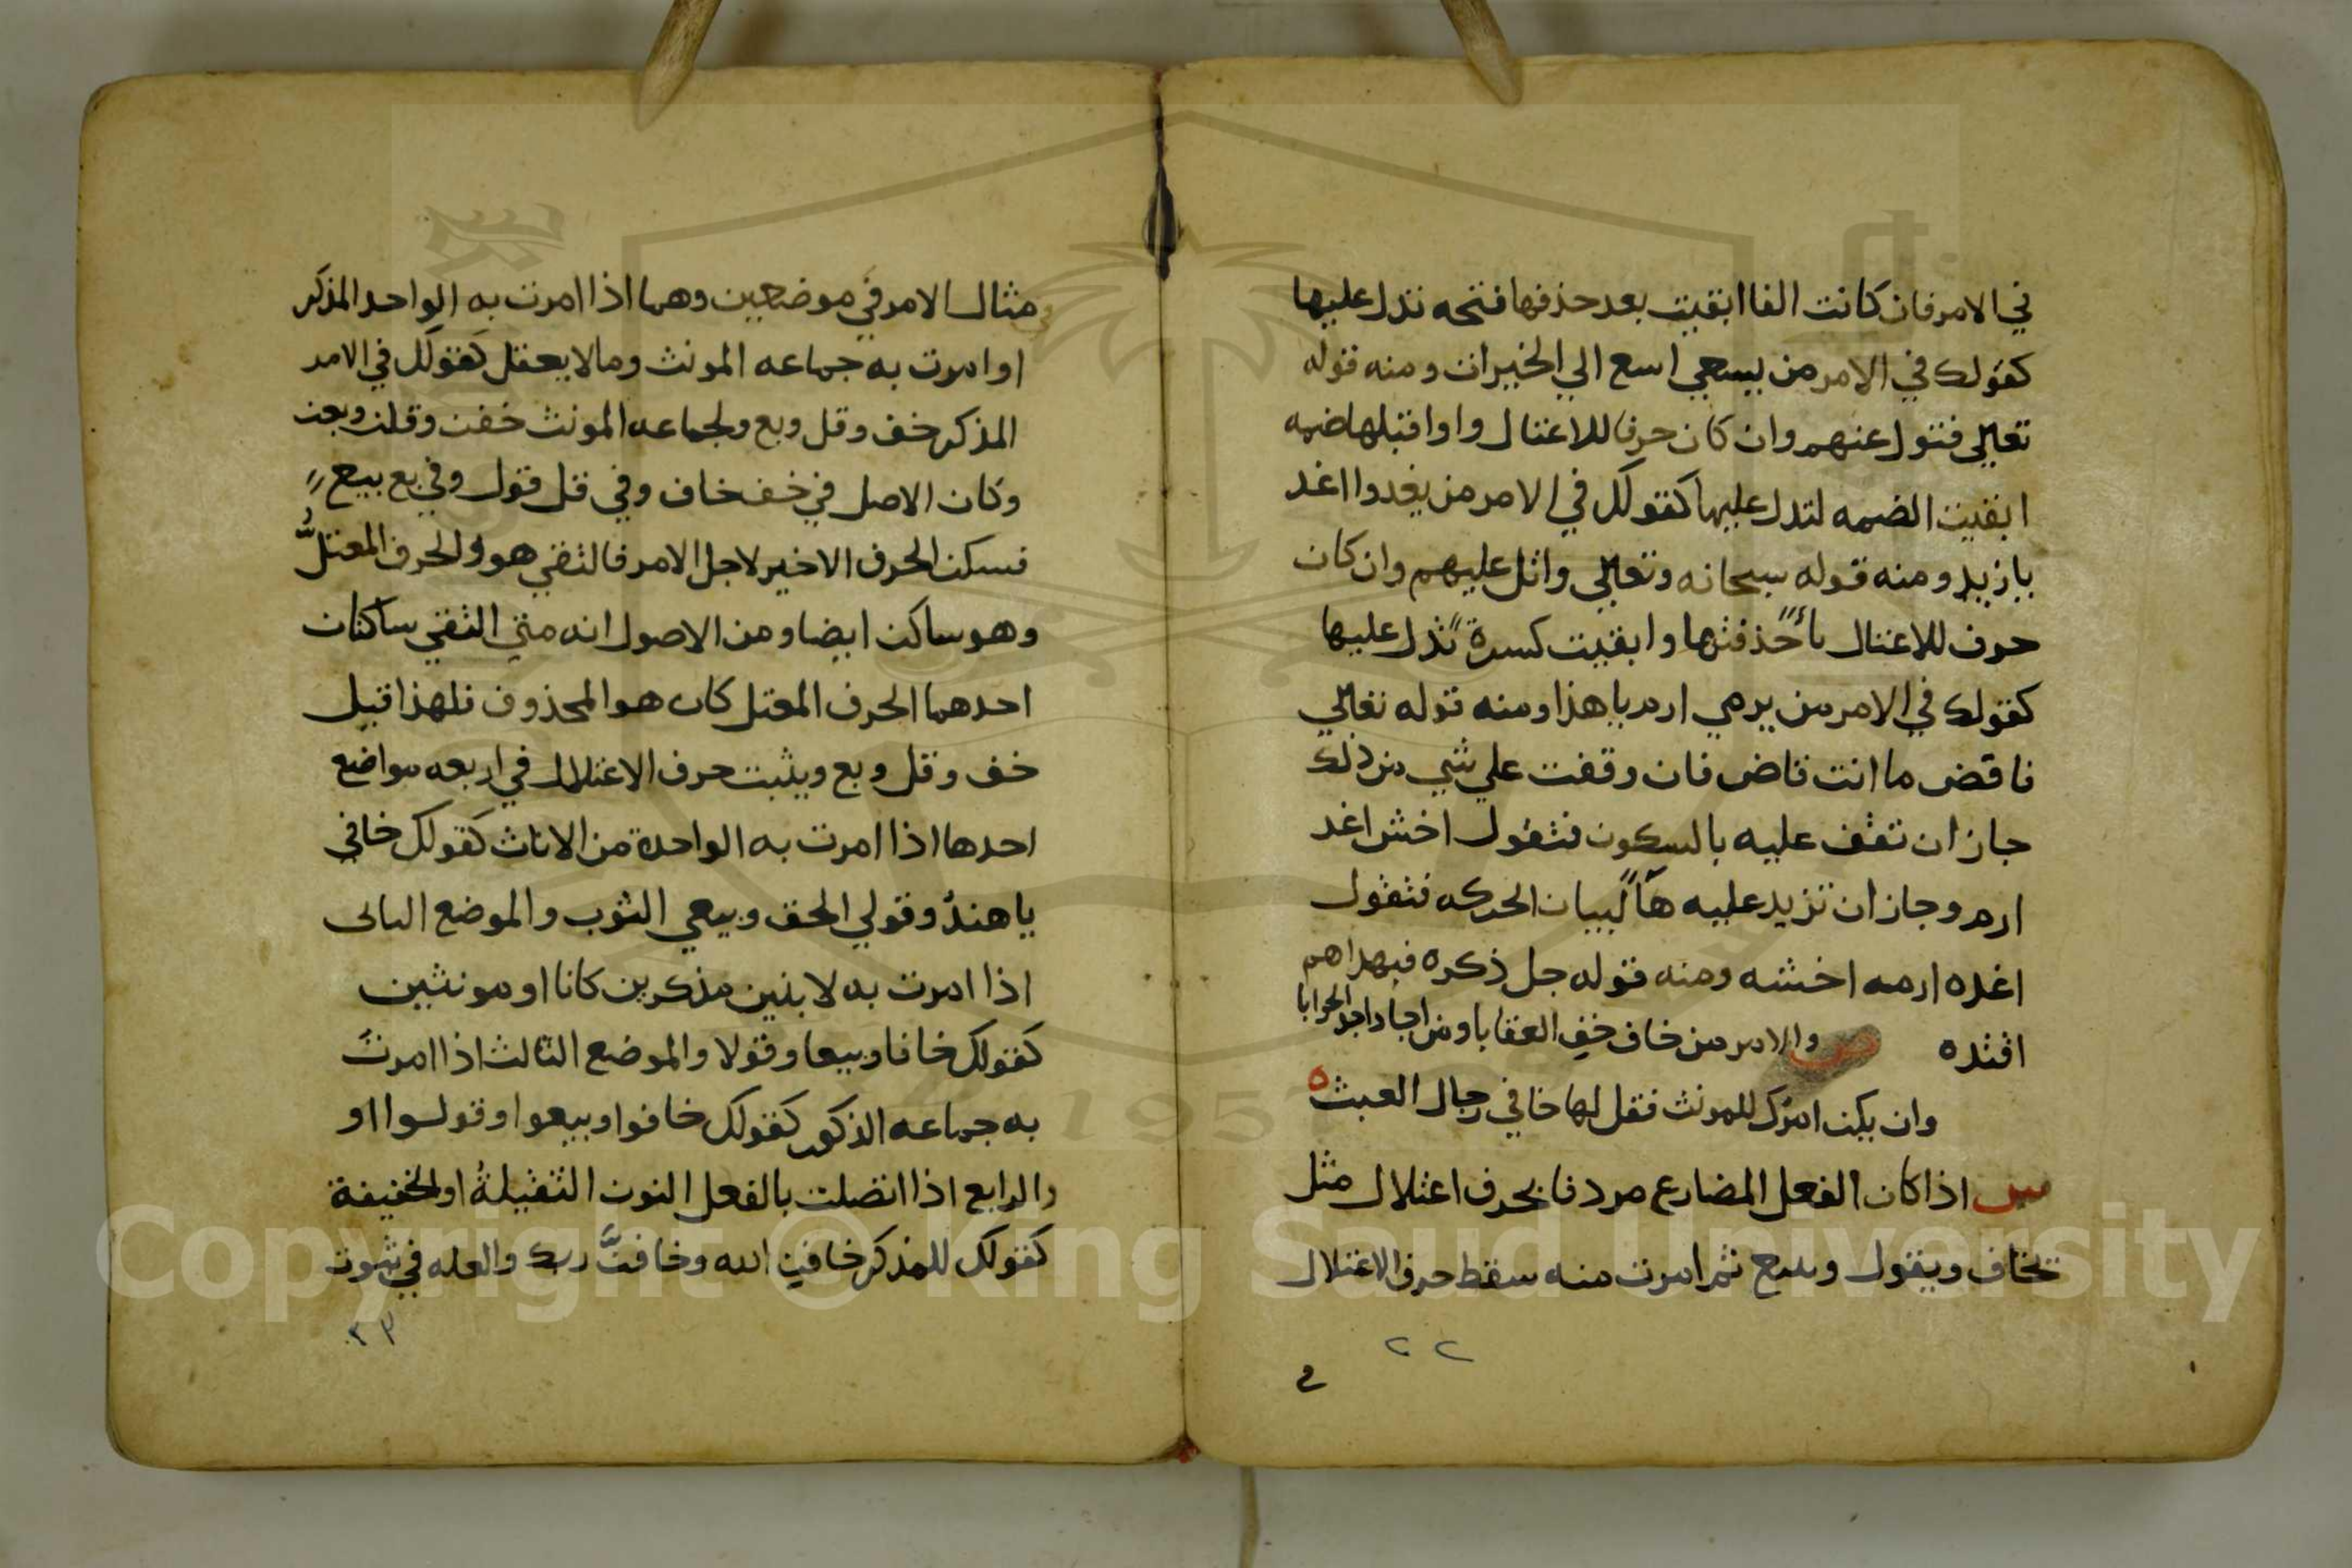 في الامر فان كانت الفا ابقيت بعد حذفها فتحه تدل عليها
كقولك في الامر من يسعي اسع الي الخيرات ومنه قوله
تعالي فتول عنهم وان كان حرف للاعتال واوا قبلها ضمه
ابقيت الضمه لتدل عليها كقولك في الامر من يغدوا اغد
يا زيد ومنه قوله سبحانه وتعالي واتل عليهم وان كان
حرف للاعتال ياءً حذفتها وابقيت كسرة تدل عليها
كقولك في الامر من يرمي ارم يا هذا ومنه قوله تعالي
فاقض ما انت قاض فان وقفت علي شي من ذلك
جاز ان تقف عليه بالسكون فتقول اخش اغد
ارم وجاز ان تزيد عليه هآً لبيان الحركه فتقول
اغده ارمه اخشه ومنه قوله جل ذكره فبهداهم
اقتده ص والامر من خاف خف العقابا ومن اجاد اجد الجوابا
وان يكن امرك للمونث فقل لها خافي رجال العبث ه
ش اذا كان الفعل المضارع مردفا بحرف اعتلال مثل
يخاف ويقول وببيع ثم امرت منه سقط حرف الاعتلال
٢٢
ومثال الامر في موضعين وهما اذا امرت به الواحد المذكر
او امرت به جماعه المونث وما لا يعقل كقولك في الامر
المذكر خف وقل وبع ولجماعه المونث خفن وقلن وبعن
وكان الاصل في خف خاف وفي قل قول وفي بع بيع
فسكن الحرف الاخير لاجل الامر فالتقي هو والحرف المعتلُّ
وهو ساكن ايضا ومن الاصول انه متي التقي ساكنان
احدهما الحرف المعتل كان هو المحذوف فلهذا قيل
خف وقل وبع ويثبت حرف الاعتلال في اربعه مواضع
احدها اذا امرت به الواحدة من الاناث كقولك خافي
يا هندُ وقولي الحق وبيعي الثوب والموضع الثاني
اذا امرت به لاثنين مذكرين كانا او مونثين
كقولك خافا وبيعا وقولا والموضع الثالث اذا امرت
به جماعه الذكور كقولك خافوا وبيعوا وقولوا او
والرابع اذا اتصلت بالفعل النون الثقيلةُ او الخفيفة
كقولك للمذكر خافن الله وخافنَّ ربك والعله في ثبوت
٢٣
Copyright © King Saud University
1957